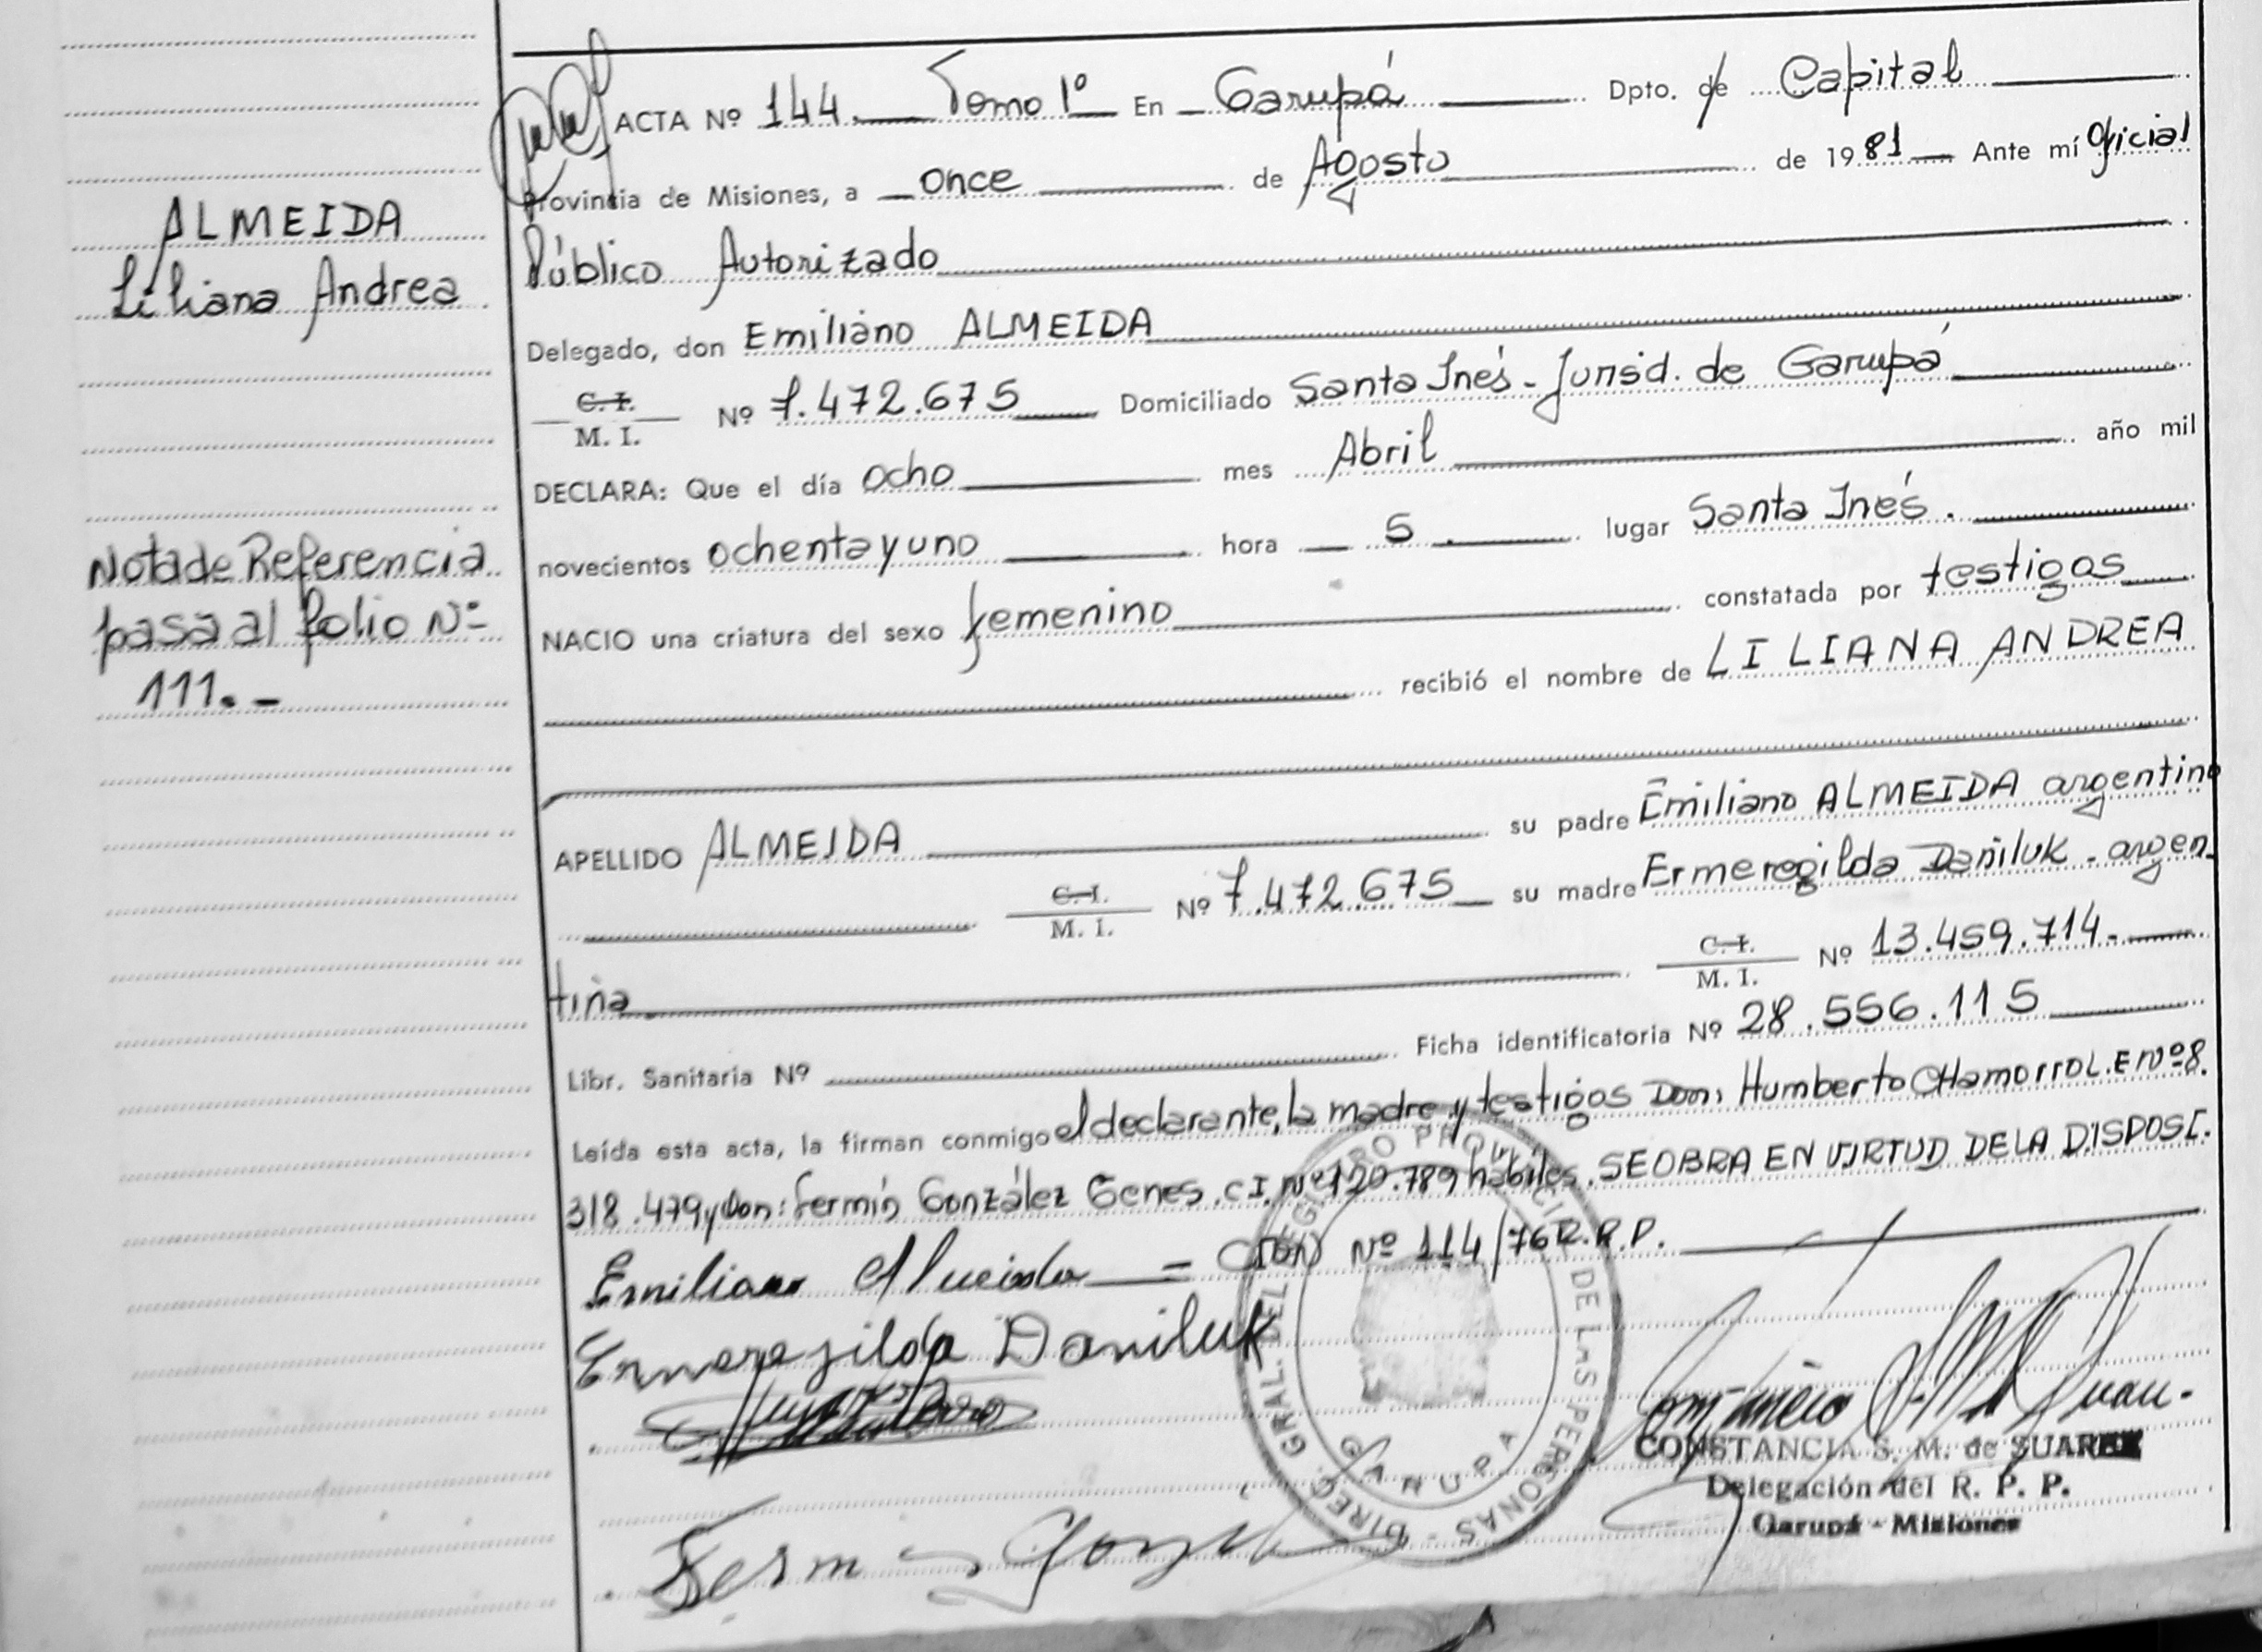 ALMEIDA
Liliana Andrea
Nota de Referencia
pasa al folio Nº
111.-
ACTA Nº 144. Tomo 1º En Garupá Dpto. de Capital
Provincia de Misiones, a once de Agosto de 1981 Ante mí Oficial
Público Autorizado
Delegado, don Emiliano ALMEIDA
C. I. / M. I. Nº 7.472.675 Domiciliado Santa Inés - Jurisd. de Garupá
DECLARA: Que el día ocho mes Abril año mil
novecientos ochenta y uno hora 5. lugar Santa Inés.
NACIO una criatura del sexo femenino constatada por testigos
recibió el nombre de LILIANA ANDREA
APELLIDO ALMEIDA su padre Emiliano ALMEIDA argentino
C. I. / M. I. Nº 7.472.675 su madre Ermeregilda Dañiluk - argen
tiña C. I. / M. I. Nº 13.459.714.
Libr. Sanitaria Nº Ficha identificatoria Nº 28.556.115
Leída esta acta, la firman conmigo el declarante, la madre y testigos Don: Humberto CHamorro L.E Nº 8.
318.479 y Don: Fermín González Genes. C I. Nº 120.789 hábiles. SE OBRA EN VIRTUD DE LA DISPOSI.
CION Nº 114/76 R.P.P.
Emiliano Almeida
Ermeregilda Daniluk
Fermin
DIREC. GRAL. DEL REGISTRO PROVINCIAL DE LAS PERSONAS
GARUPA
CONSTANCIA S. M. de SUAREZ
Delegación del R. P. P.
Garupá - Misiones